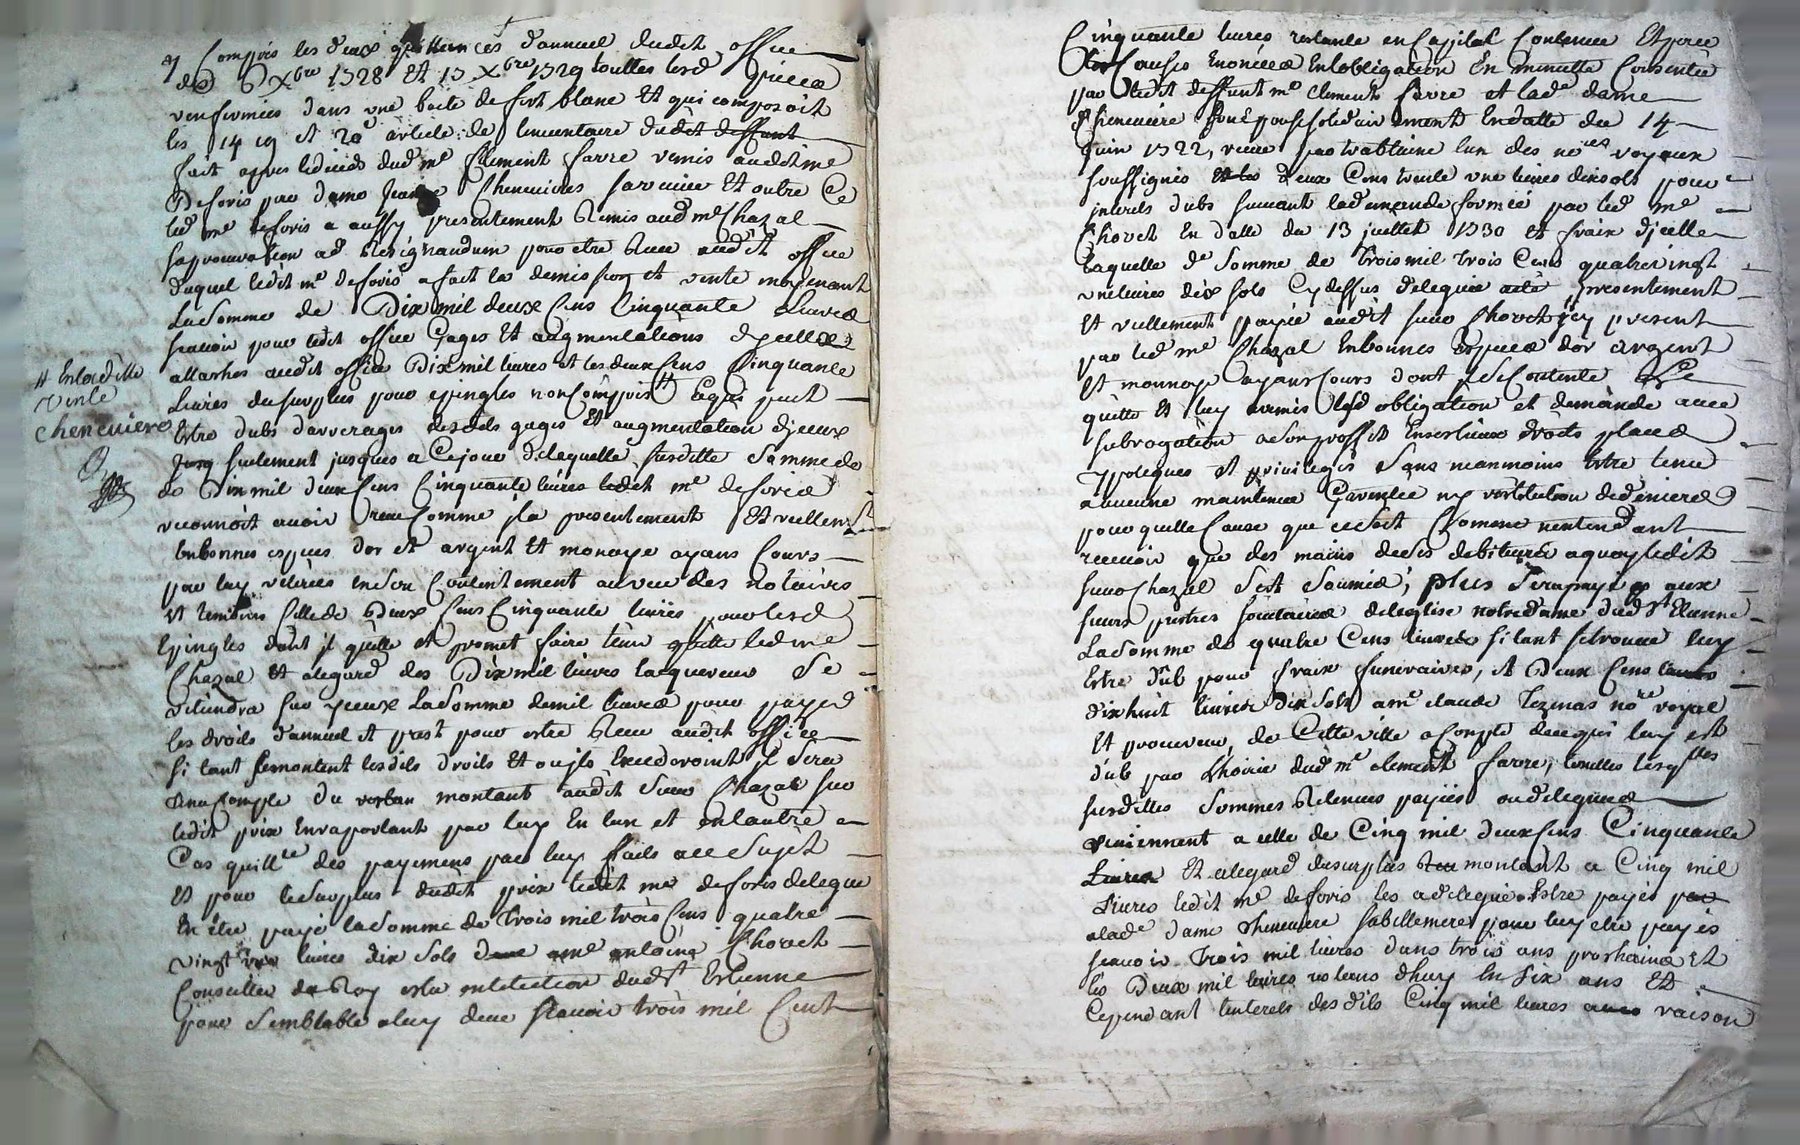 y Compris les deux quittances d'annuel dudit office
des Xbre 1728 et 15 Xbre 1729 touttes lesd pieces
renfermées dans une boite de fert blanc Et qui composoit
les 14 19 et 20e article de linventaire dudit deffunt
fait apres le deceds dud me Clement farre remis audit me
Deforis par dame Jeanne Cheneviere sa veuve Et outre Ce
led me deforis a aussy presentement Remis aud me Chazal
sa procuration ad Resignandum pour etre Receu audit office
duquel ledit me deforis a fait la demission et vente moyenant
La Somme de Dix mil deux Cens Cinquante Livres
scavoir pour ledit office Gages Et augmentations dycelles
attachés audit office Dix mil livres et les deux Cens Cinquante
Livres du surplus pour epingles non Compris # Ce qui peut
# En ladtte
vente
cheneviere
Estre dubs darrerages desdits gages Et augmentation dyceux
seulement jusques a Ce jour de laquelle susditte Somme de
de Dix mil deux Cens Cinquante livres ledit me deforis
reconnoit avoir receu Comme il a presentement Et reellemt
En bonnes especes dor et argent Et monoye ayans Cours
par luy retirées en son Contentement au veu des notaires
Et temoins Celle de Deux Cens Cinquante livres pour lesd
Epingles dont il quitte et promet faire tenir quitte led me
Chazal Et a legard des Dix mil livres lacquereur Se
retiendra sur yceux La Somme de mil livres pour payer
les droits d'annuel et prest pour estre Receu audit office
si tant se montent lesdits droits Et ou ils Excederoint il Sera
tenu Compte du restan montant audit Sieur Chazal sur
ledit prix En raportant par luy En lun et en lautre
Cas quittce des payemens par luy faits a ce Sujet
Et pour le Surplus dudit prix ledit me deforis delegue
En etre payé la Somme de trois mil trois Cens quatre
vingt une livres dix Sols a me antoine Chovet
Conseiller du Roy en la election dud St Estienne
pour Semblable a luy deue scavoir trois mil Cent
Cinquante livres restante en Capital Contenue Et pour
les Causes Enoncées En lobligation En minutte Consentie
par ledit deffunt me Clement farre et lade dame
Cheneviere son Epouse solidairement En datte du 14
Juin 1722, receue par trablaine lun des nores royaux
soussignés et les deux Cens trente une livres dix sols pour
interets dubs suivant la demande formée par led me
Chovet En datte du 13 juillet 1730 et fraix dycelle
laquelle de Somme de trois mil trois Cens quatre vingt
une livres dix sols Cy dessus deleguée a été presentement
Et reellement payée audit sieur Chovet icy present
par led me Chazal En bonnes especes dor argent
Et monnoye ayans Cours dont il se Contente Le
quitte Et luy a remis lesd obligation et demande avec
subrogation a son proffit En ses lieux droits place
ypoteques et privileges Sans neanmoins Estre tenu
a aucune maintenue Garentie ny restitution de deniers
pour quelle Cause que ce Soit Comme nentendant
recevoir que des mains de ses debiteurs a quoy ledit
sieur Chazal Sest Soumis; plus Sera payé aux
sieurs prestres societaires de leglise notre dame dud St Etienne
La Somme de quatre Cens livres si tant se trouve leur
Estre dub pour fraix funeraires, et Deux Cens
dix huit livres dix Sols a me claude Tezenas nore royal
Et procureur, de Cette ville a Compte de ce qui luy est
dub par Lhoirie dud me clement farre, touttes lesqlles
susdittes Sommes Retenues payées ou deleguées
reviennent a celle de Cinq mil deux Cens Cinquante
Livres Et a legard du surplus montant a Cinq mil
Livres ledit me deforis les a delegué Estre payés
a lade dame Cheneviere sa belle mere pour luy etre payés
scavoir Trois mil livres dans trois ans prochains Et
les Deux mil livres restans dhuy En six ans Et
Cependant linterets desdits Cinq mil livres a raison